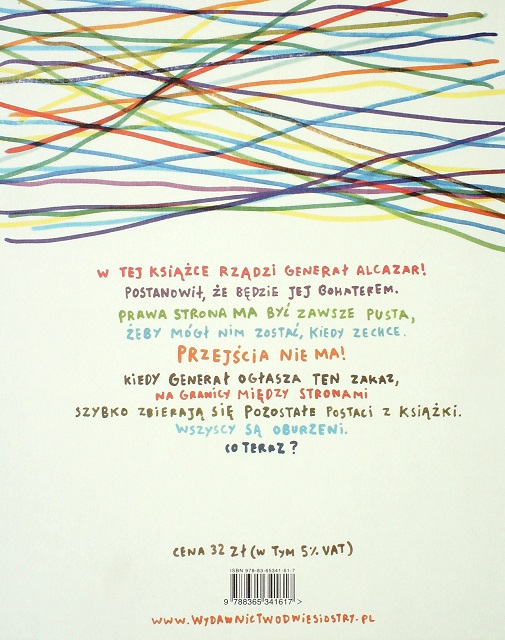 W TEJ KSIĄŻCE RZĄDZI GENERAŁ ALCAZAR!
POSTANOWIŁ, ŻE BĘDZIE JEJ BOHATEREM.
PRAWA STRONA MA BYĆ ZAWSZE PUSTA,
ŻEBY MÓGŁ NIM ZOSTAĆ, KIEDY ZECHCE.
PRZEJŚCIA NIE MA!
KIEDY GENERAŁ OGŁASZA TEN ZAKAZ,
NA GRANICY MIĘDZY STRONAMI
SZYBKO ZBIERAJĄ SIĘ POZOSTAŁE POSTACI Z KSIĄŻKI.
WSZYSCY SĄ OBURZENI.
CO TERAZ?
CENA 32 ZŁ (W TYM 5% VAT)
ISBN 978-83-65341-61-7
9 788365 341617 >
WWW.WYDAWNICTWODWIESIOSTRY.PL